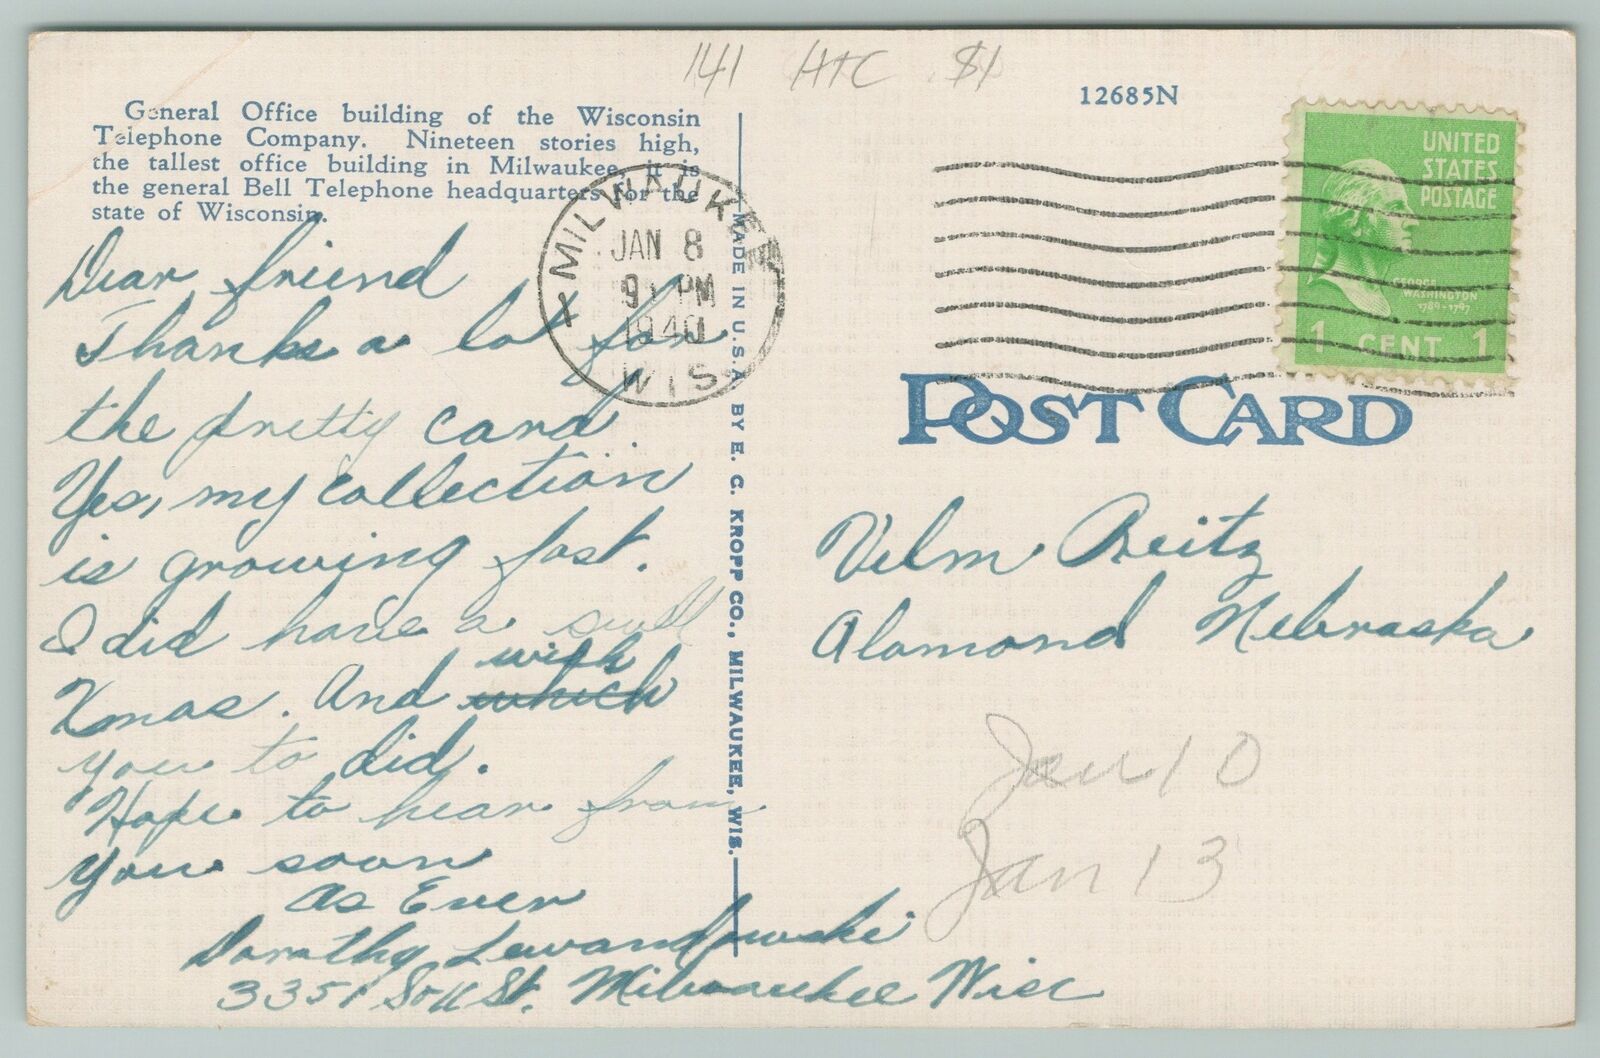 141 HTC $1
12685N
General Office building of the Wisconsin
Telephone Company. Nineteen stories high,
the tallest office building in Milwaukee, it is
the general Bell Telephone headquarters for the
state of Wisconsin.
MILWAUKEE
JAN 8
9 PM
1940
WIS.
UNITED
STATES
POSTAGE
GEORGE
WASHINGTON
1789-1797
1 CENT 1
POST CARD
Dear friend
Thanks a lot for
the pretty card.
Yes, my collection
is growing fast.
I did have a swell
Xmas. And wish
which
you to did.
Hope to hear from
you soon
As Ever
Dorothy Lewandowski
3351 So 11 St. Milwaukee Wisc
MADE IN U.S.A. BY E. C. KROPP CO., MILWAUKEE, WIS.
Velm Reitz
Alomond Nebraska
Jan 10
Jan 13